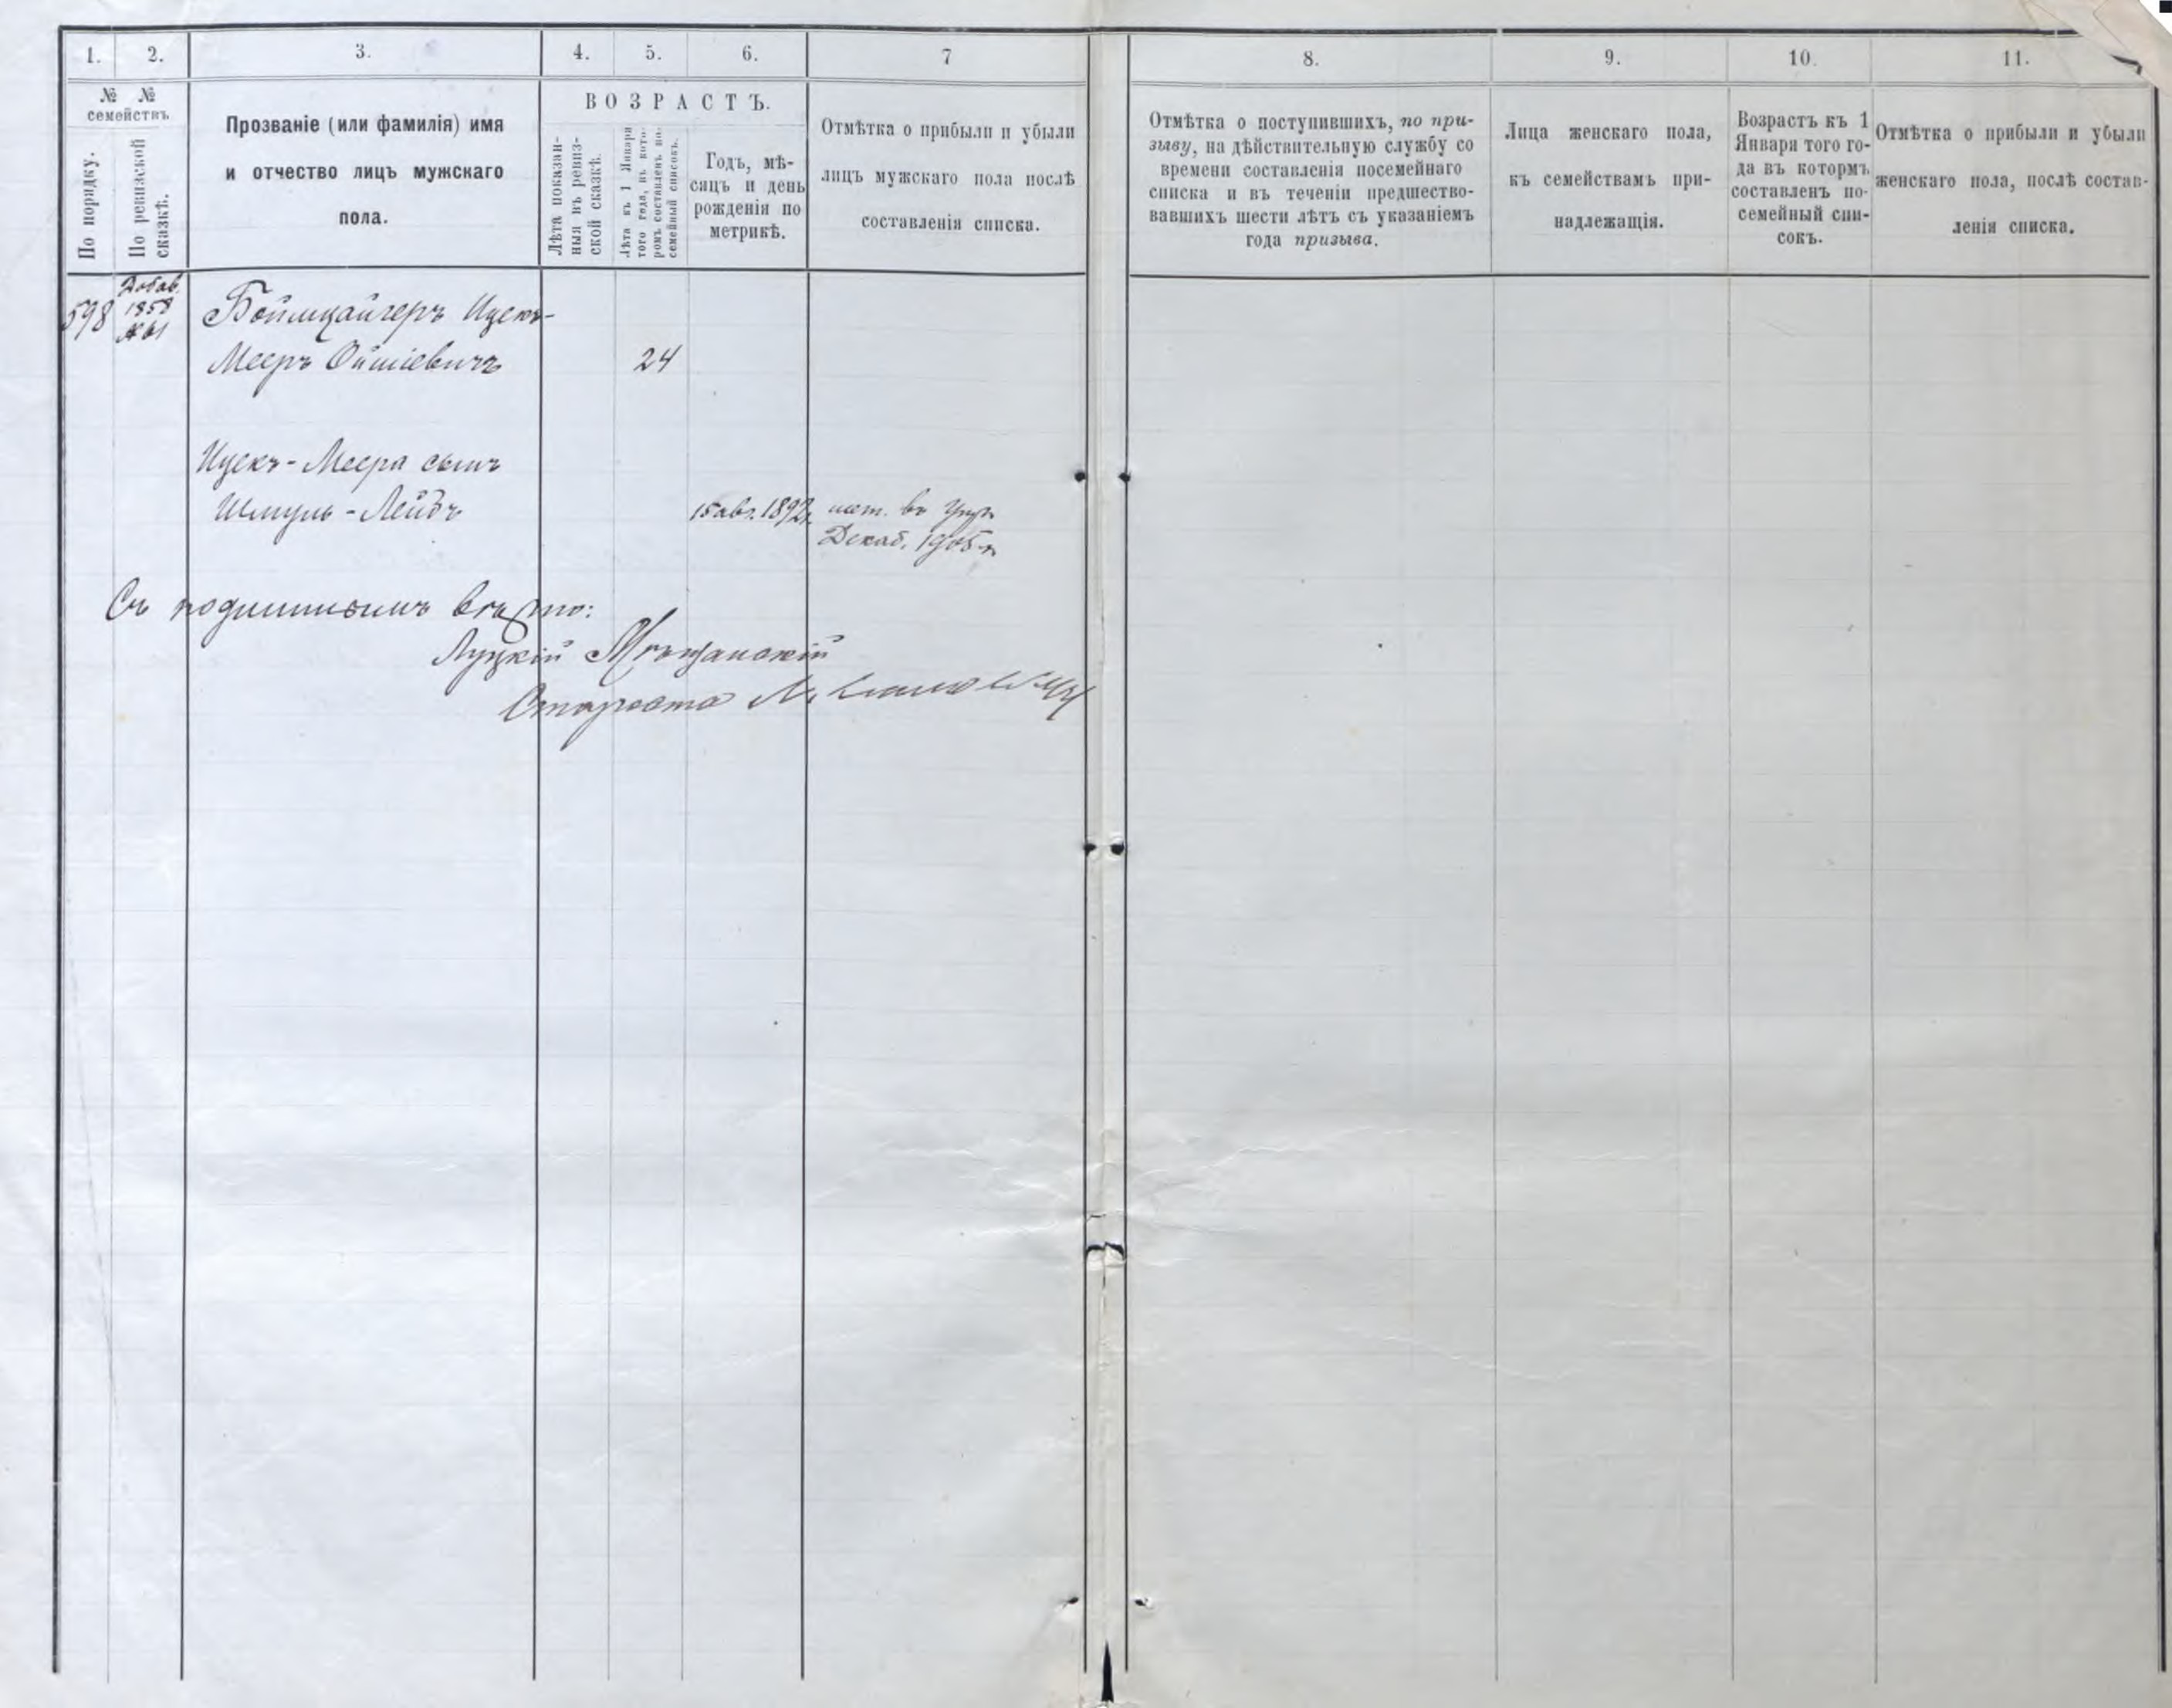 1.
2.
3.
4.
5.
6.
7
8.
9.
10.
11.
№ №
семействъ
По порядку.
По ревизской
сказкѣ.
Прозваніе (или фамилія) имя
и отчество лицъ мужскаго
пола.
ВОЗРАСТЪ.
Лѣта показан-
ныя въ ревиз-
ской сказкѣ.
Лѣта къ 1 Января
того года, въ кото-
ромъ составленъ по-
семейный списокъ.
Годъ, мѣ-
сяцъ и день
рожденія по
метрикѣ.
Отмѣтка о прибыли и убыли
лицъ мужскаго пола послѣ
составленія списка.
Отмѣтка о поступившихъ, по при-
зыву, на дѣйствительную службу со
времени составленія посемейнаго
списка и въ теченіи предшество-
вавшихъ шести лѣтъ съ указаніемъ
года призыва.
Лица женскаго пола,
къ семействамъ при-
надлежащія.
Возрастъ къ 1
Января того го-
да въ котормъ
составленъ по-
семейный спи-
сокъ.
Отмѣтка о прибыли и убыли
женскаго пола, послѣ состав-
ленія списка.
598
Добав.
1858
№ 61
Боймцайгеръ Ицекъ-
Мееръ Ойшіевичъ
24
Ицекъ-Меера сынъ
Шмуль-Лейбъ
15 авг. 1892 г.
Декаб. 1905 г.
Съ подлиннымъ вѣрно:
Луцкій Мѣщанскій
Староста